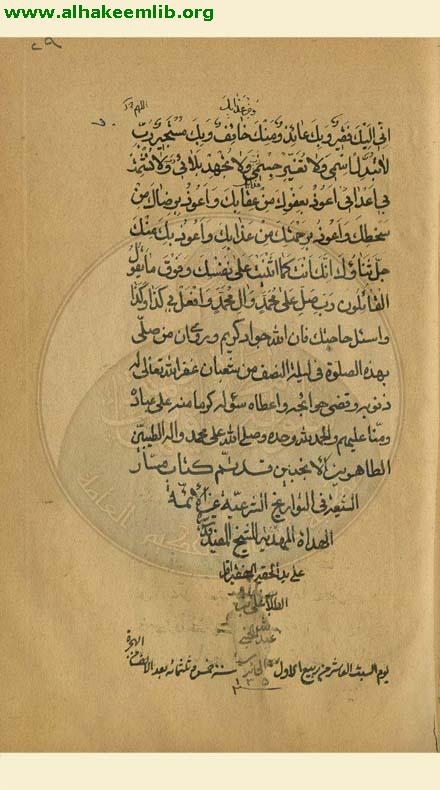 www.alhakeemlib.org
٢٩
اللهم
اني اليك فقير وبك عائذ ومنك خائف وبك مستجير رب
لا تبدل اسمي ولا تغير جسمي ولا تجهد بلائي ولا تشمت
بي اعدائي اعوذ بعفوك من عقابك واعوذ برضاك من
سخطك واعوذ برحمتك من عذابك واعوذ بك منك
جل ثناؤك انك انت كما اثنيت على نفسك وفوق ما يقول
القائلون رب صل على محمد وال محمد وافعل بي كذا وكذا
واسئل حاجتك فان الله جواد كريم وروي ان من صلى
بهذه الصلوة في ليلة النصف من شعبان غفر الله تعالى له
ذنوبه وقضى حوائجه واعطاه سؤله كرما منه على عباده
ومنا عليهم والحمد لله وحده وصلى الله على محمد واله الطيبين
الطاهرين الانجبين قد تم كتاب مسار
الشيعة في التواريخ الشرعية عن الائمة
الهداة المهدية للشيخ المفيد
على يد الحقير الفقير اقل
الطلاب علي بن
يوم السبت العاشر من ربيع الاول سنة خمسة ثلثمائة بعد الالف من الهجرة
١٣٠٥